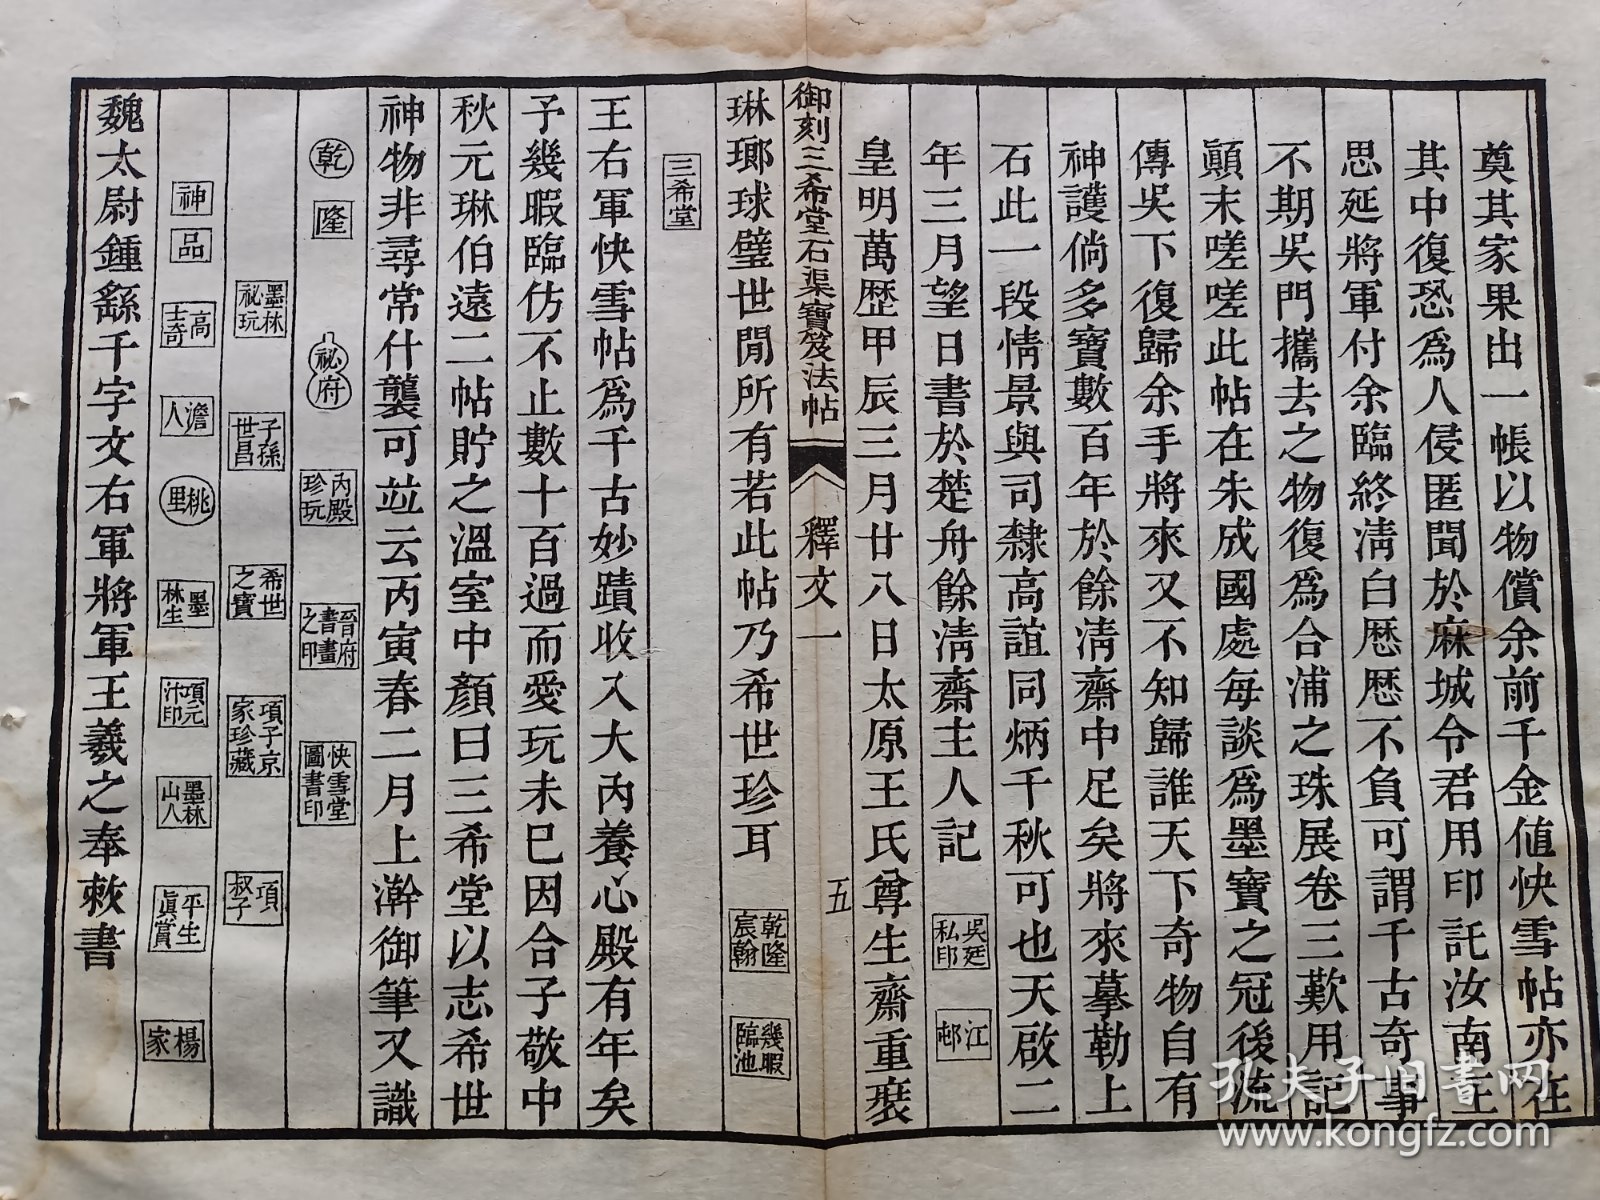 奠其家果出一帳以物償余前千金値快雪帖亦在
其中復恐爲人侵匿聞於麻城令君用印託汝南王
思延將軍付余臨終淸白歴歴不負可謂千古奇事
不期吳門攜去之物復爲合浦之珠展卷三歎用記
顚末嗟嗟此帖在朱成國處每談爲墨寶之冠後流
傳吳下復歸余手將來又不知歸誰天下奇物自有
神護倘多寶數百年於餘淸齋中足矣將來摹勒上
石此一段情景與司隸高誼同炳千秋可也天啟二
年三月望日書於楚舟餘淸齋主人記 吳廷私印 江邨
皇明萬歴甲辰三月廿八日太原王氏尊生齋重裝
御刻三希堂石渠寶笈法帖 釋文一 五
琳瑯球璧世閒所有若此帖乃希世珍耳 乾隆宸翰 幾暇臨池
三希堂
王右軍快雪帖爲千古妙蹟收入大內養心殿有年矣
子幾暇臨仿不止數十百過而愛玩未已因合子敬中
秋元琳伯遠二帖貯之溫室中顏曰三希堂以志希世
神物非尋常什襲可竝云丙寅春二月上澣御筆又識
乾 隆 祕府 內殿珍玩 晉府書畫之印 快雪堂圖書印
墨林祕玩 子孫世昌 希世之寶 項子京家珍藏 項叔子
神 品 高士奇 澹人 桃里 墨林生 項元汴印 墨林山人 平生眞賞 楊家
魏太尉鍾繇千字文右軍將軍王羲之奉敕書
孔夫子旧書网
www.kongfz.com